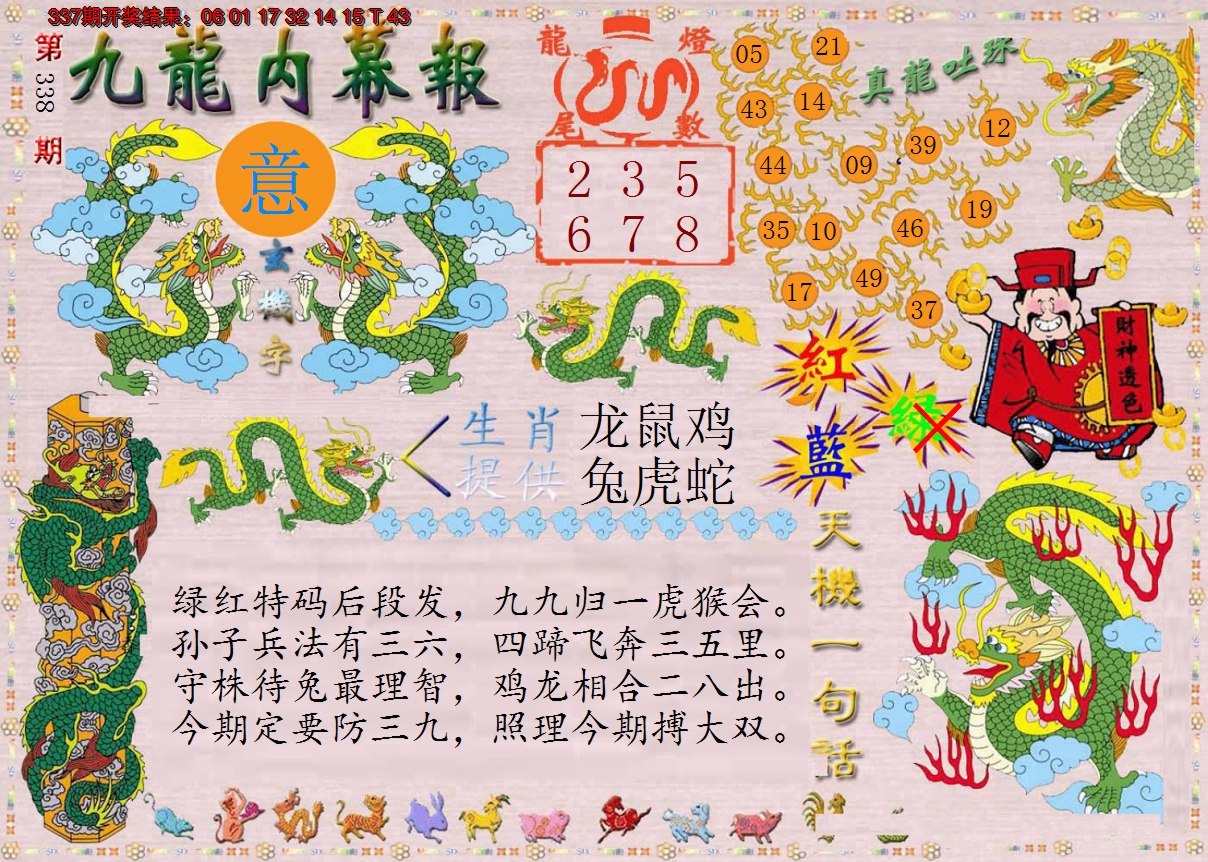 337期开奖结果：06 01 17 32 14 15 T 43
第338期
九龍内幕報
意
玄機字
龍燈
尾數
2 3 5
6 7 8
真龍吐珠
05 21
43 14
44 09 39 12
35 10 46 19
17 49 37
財神透色
紅
绿
藍
生肖 龙鼠鸡
提供 兔虎蛇
天機一句話
绿红特码后段发，九九归一虎猴会。
孙子兵法有三六，四蹄飞奔三五里。
守株待兔最理智，鸡龙相合二八出。
今期定要防三九，照理今期搏大双。